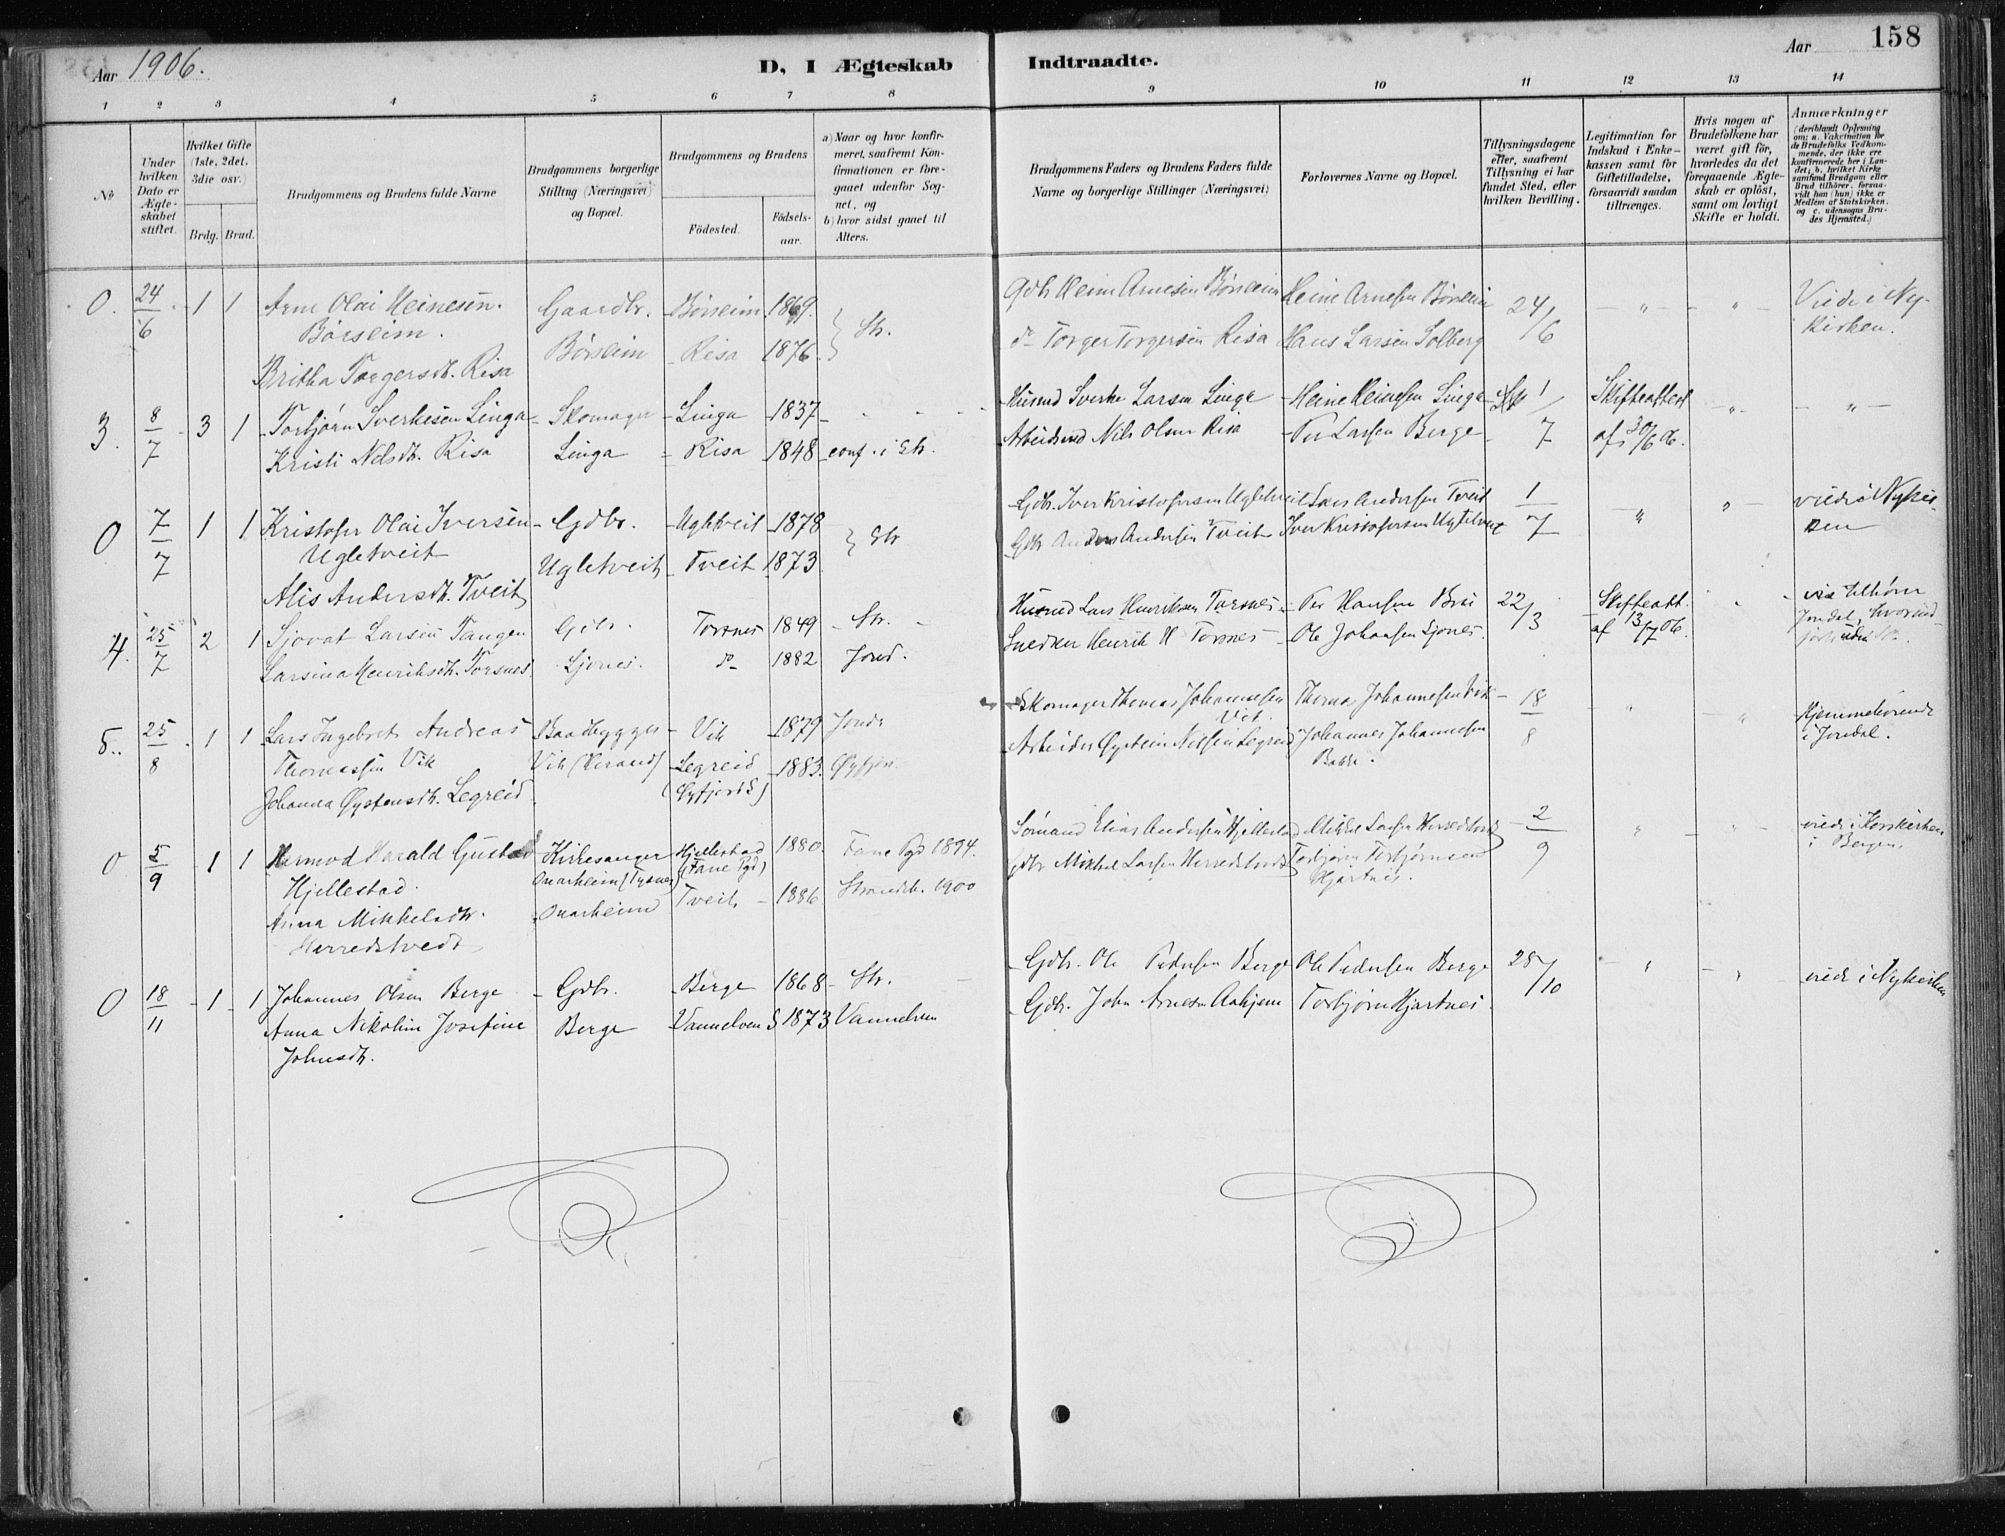 Aar 1906.
D, I Ægteskab Indtraadte.
Aar 158
1 2 3 4 5 6 7 8 9 10 11 12 13 14
No
Under hvilken Dato er Ægteskabet stiftet.
Hvilket Gifte (1ste, 2det, 3die osv.)
Brdg. Brud.
Brudgommens og Brudens fulde Navne
Brudgommens borgerlige Stilling (Næringsvei) og Bopæl.
Brudgommens og Brudens
Födested. Födselsaar.
a) Naar og hvor konfirmeret, saafremt Konfirmationen er foregaaet udenför Sognet, og
b) hvor sidst gaaet til Alters.
Brudgommens Faders og Brudens Faders fulde Navne og borgerlige Stillinger (Næringsvei)
Forlovernes Navne og Bopæl.
Tillysningsdagene eller, saafremt Tillysning ei har fundet Sted, efter hvilken Bevilling.
Legitimation for Indskud i Enkekassen samt for Giftetilladelse, forsaavidt saadan tiltrænges.
Hvis nogen af Brudefolkene har været gift för, hvorledes da det foregaaende Ægteskab er oplöst, samt om lovligt Skifte er holdt.
Anmærkninger
(deriblandt Oplysning om: a. Vakcination for de Brudefolks Vedkommende, der ikke ere konfirmerede her i Landet; b. hvilket Kirkesamfund Brudgom eller Brud tilhörer, forsaavidt han (hun) ikke er Medlem af Statskirken. og c. udensogns Brudes Hjemsted.)
0. 24/6 1 1 Arne Olai Heinesen Gaardbr. Börsheim 1869. Gdb Heine Arnesen Börsheim Heine Arnesen Börsheim 24/6 - " - " Viede i Ny-
Börsheim. Börsheim Risa 1876. } Str. do Torger Torgersen Risa Hans Larsen Solberg kirken.
Britha Torgersdt. Risa
3. 8/7 3 1 Torbjörn Sverkesen Linga Skomager Linga 1837 Husmd Sverke Larsen Linga Heine Heinesen Linga 1/7 Skifteattest - " - - " -
Kristi Nelsdt. Risa Linga Risa 1848 conf. i Str. Arbeidsmd Nils Olsen Risa Per Larsen Berge af 30/6 06.
0 7/7 1 1 Kristofer Olai Iversen Gdbr. Ugletveit 1878 } Str Gdbr. Iver Kristofersen Ugletveit Lars Andersen Tveit 1/7 " " viede i Nykir-
Ugletveit Ugletveit Tveit 1873. Gdbr Anders Andersen Tveit Iver Kristofersen Ugletveit ken
Alis Andersdt. Tveit
4. 25/7 2 1 Sjovat Larsen Tangen Gdbr. Torsnes 1849 Str. Husmd Lars Henriksen Torsnes Per Hansen 22/3 Skifteatt. " tilhörer
Larsina Henriksdt. Torsnes Ljones. do 1882 Jond. Snedker Henrik H Torsnes Ole Johansen Ljones. af 13/7 06. Jondal,
5. 25/8 1 1 Lars Ingebret Andreas Baadbygger Vik 1879 Jond. Skomager Thomas Johannessen Vik Thomas Johannesen Vik 18/8 " " Hjemmehörende
Thomassen Vik Vik (Herand) Legreid 1883. Öyfjor. Arbeider Öystein Nelsen Legreid Johannes Johannesen i Jondal.
Johanna Öystensdt. Legreid (Öyfjord) Bakke.
0 5/9 1 1 Hermod Harald Gustav Kirkesanger Hjellestad 1880. Fane Pgd 1894. Sömand Elias Andersen Hjellestad Mikkel Larsen Herredstvedt 2/9 " " viede i Korskirken
Hjellestad. Onarheim (Tysnes) (Fane Pgd) Gdbr Mikkel Larsen Herredstvedt Torbjörn Torbjörnsen i Bergen.
Anna Mikkelsdtr. Onarheim Tveit 1886 Strandeb. 1900 Hjartnes.
Herredstvedt
0 18/11 1 1 Johannes Olsen Berge Gdbr. Berge 1868 Str. Gdbr. Ole Pedersen Berge Ole Pedersen Berge 28/10 " " viede i Nykirken
Anna Nikoline Josefine Berge Vannelven S 1873 Vannelven Gdbr. John Arnesen Aahjem Torbjörn Hjartnes.
Johnsdt.